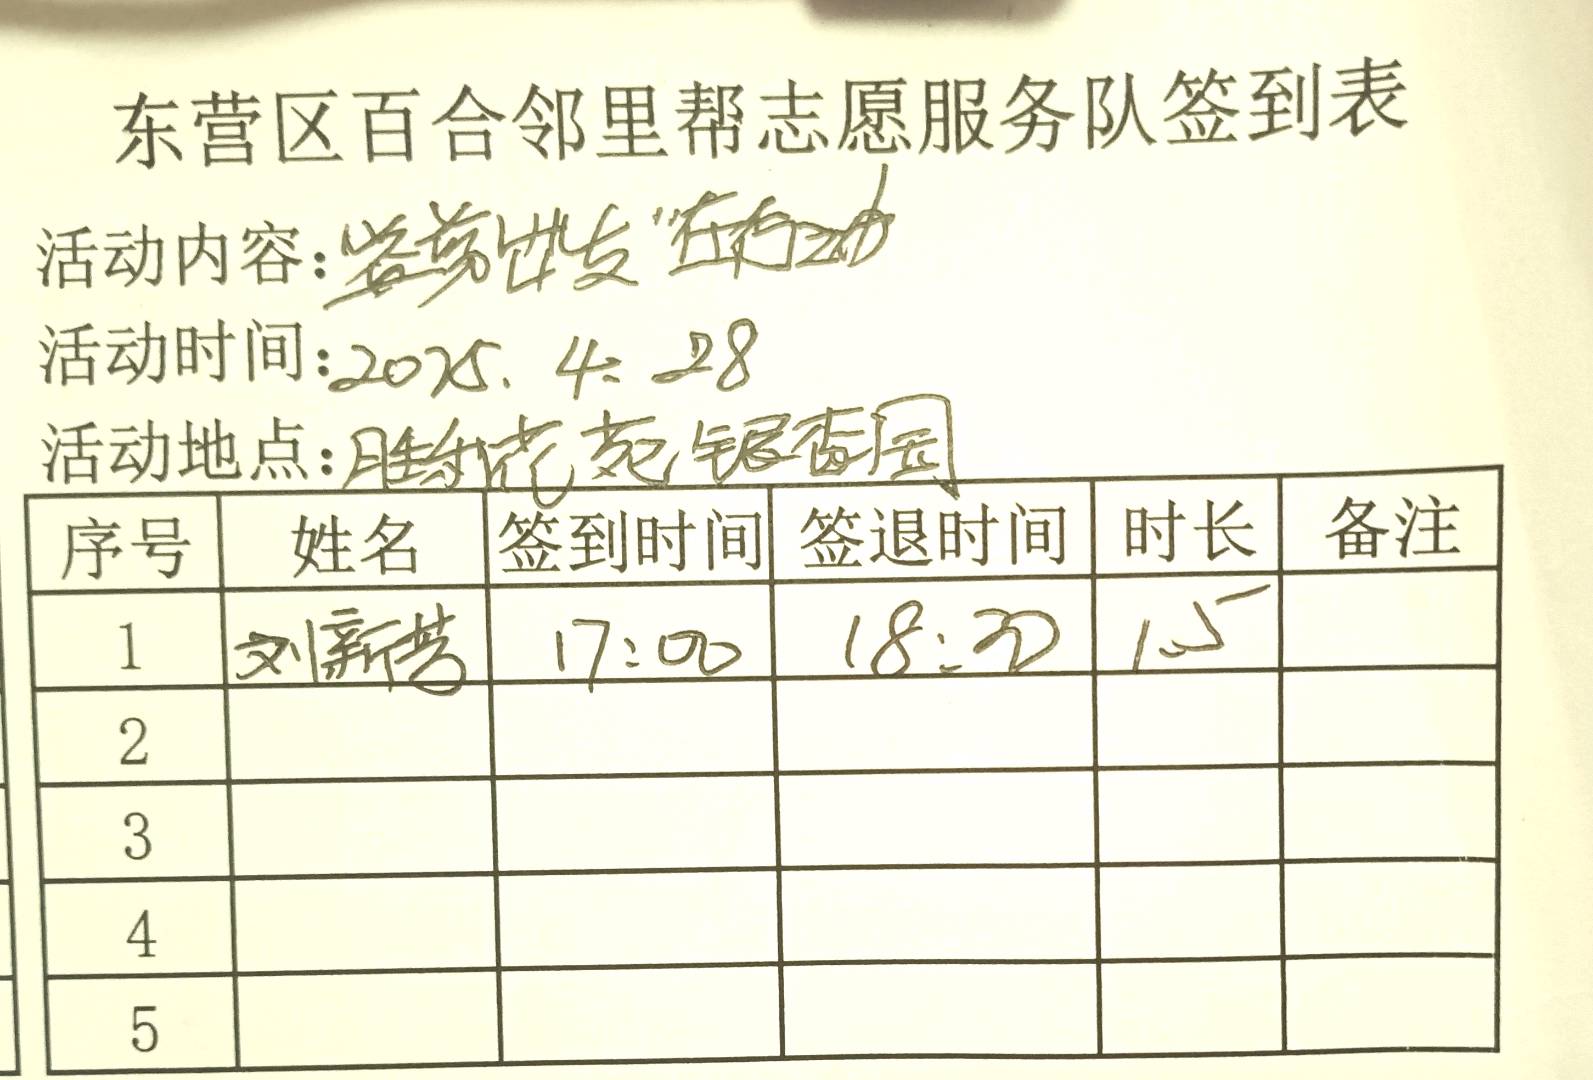 东营区百合邻里帮志愿服务队签到表
活动内容:"在行动
活动时间:2025.4.28
活动地点:胜利花苑银杏园
序号 姓名 签到时间 签退时间 时长 备注
1 刘新芳 17:00 18:30 1.5
2
3
4
5